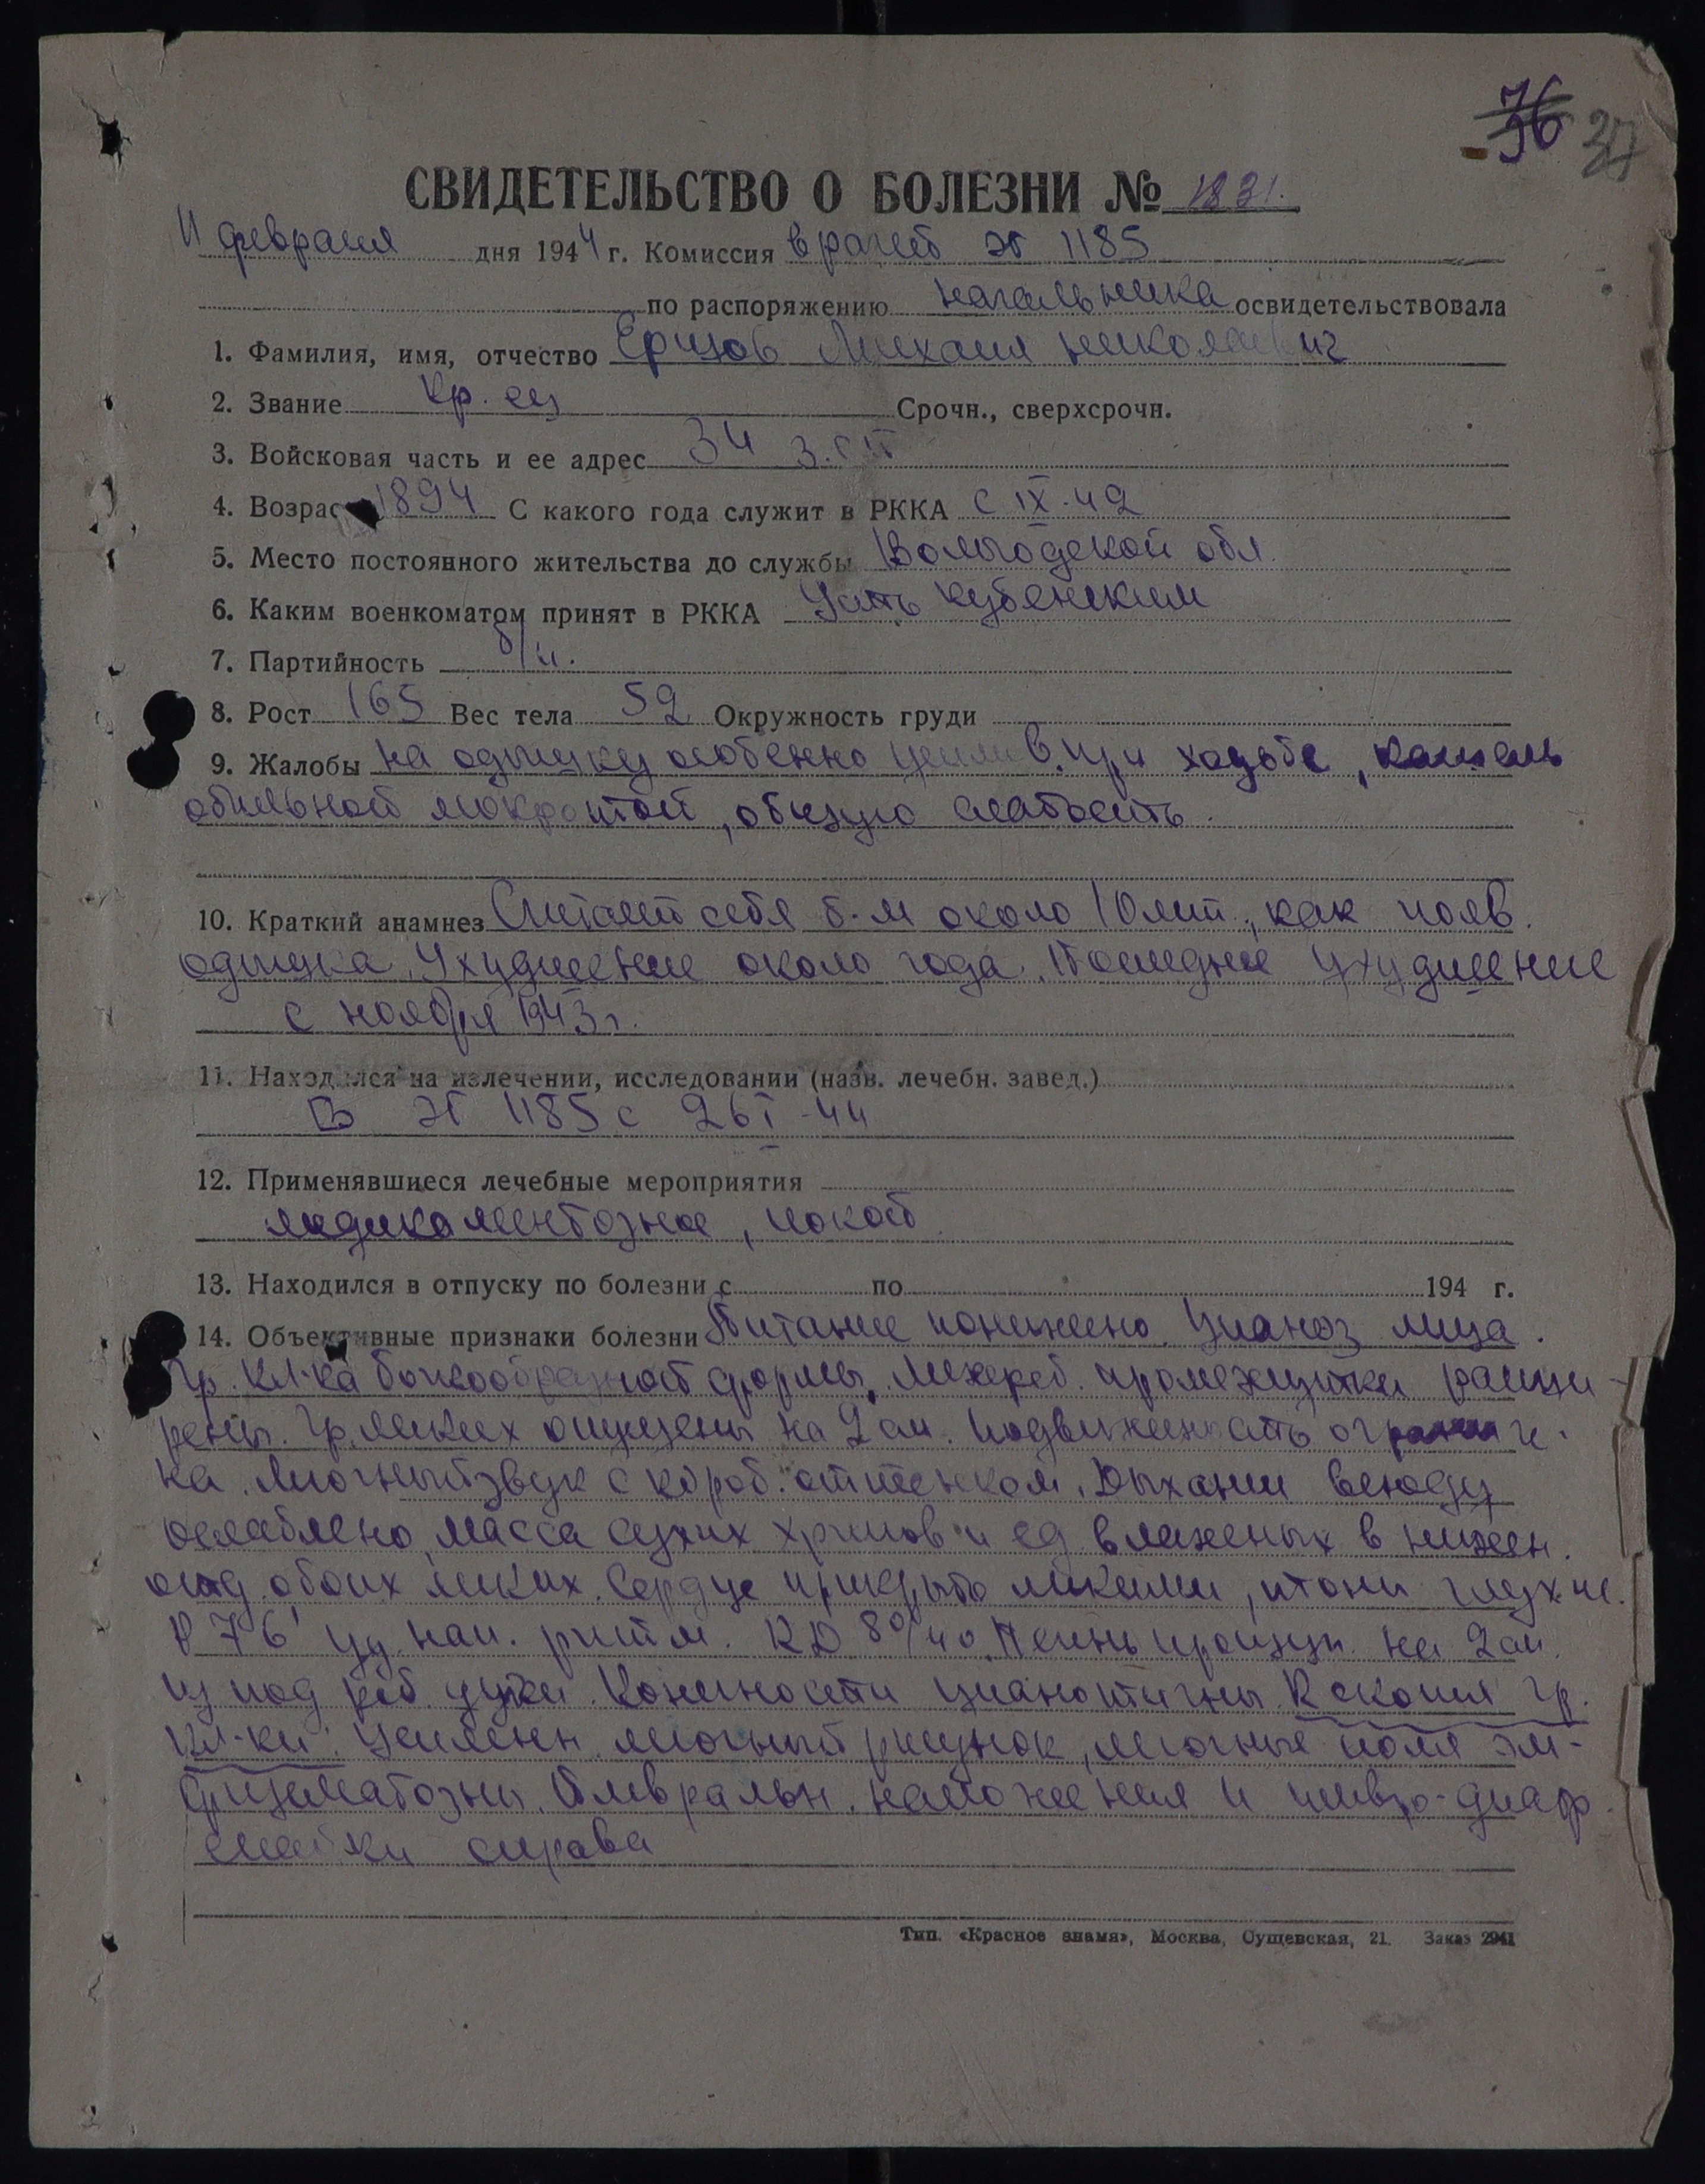 36 37
СВИДЕТЕЛЬСТВО О БОЛЕЗНИ № 1831.
11 февраля дня 1944 г. Комиссия врачей ЭГ 1185
по распоряжению начальника освидетельствовала
1. Фамилия, имя, отчество Ершов Михаил Николаевич
2. Звание кр-ец Срочн., сверхсрочн.
3. Войсковая часть и ее адрес 34 з.сп
4. Возраст 1894 С какого года служит в РККА с IX-42
5. Место постоянного жительства до службы Вологодской обл.
6. Каким военкоматом принят в РККА Усть Кубенским
7. Партийность б/п.
8. Рост 165 Вес тела 52 Окружность груди
9. Жалобы на одышку особенно усилив. при ходьбе, кашель
обильной мокротой, общую слабость.
10. Краткий анамнез Считает себя б-м около 10 лет, как появ.
одышка. Ухудшение около года. Последнее ухудшение
с ноября 1943 г.
11. Находился на излечении, исследовании (назв. лечебн. завед.)
В ЭГ 1185 с 26 I-44
12. Применявшиеся лечебные мероприятия
медикаментозное, покой
13. Находился в отпуску по болезни с по 194 г.
14. Объективные признаки болезни Питание понижено. Цианоз лица.
Гр. кл-ка бочкообразной формы. Межреб. промежутки расши-
рены. Гр. легких опущены на 2 см. Подвижность ограниче-
на. Легочный звук с короб. оттенком. Дыхание всюду
ослаблено, масса сухих хрипов и ед. влажных в нижн.
отд. обоих легких. Сердце прикрыто легкими, тоны глухие.
P 76' уд. нап. ритм. КД 80/40. Печень прощуп. на 2 см
из под реб. дуги. Конечности цианотичны. R скопия гр.
кл-ки: Усилен. легочный рисунок, легочные поля эм-
физематозны. Плевральн. наложения и плевро-диафр.
спайки справа
Тип. «Красное знамя», Москва, Сущевская, 21. Заказ 2941